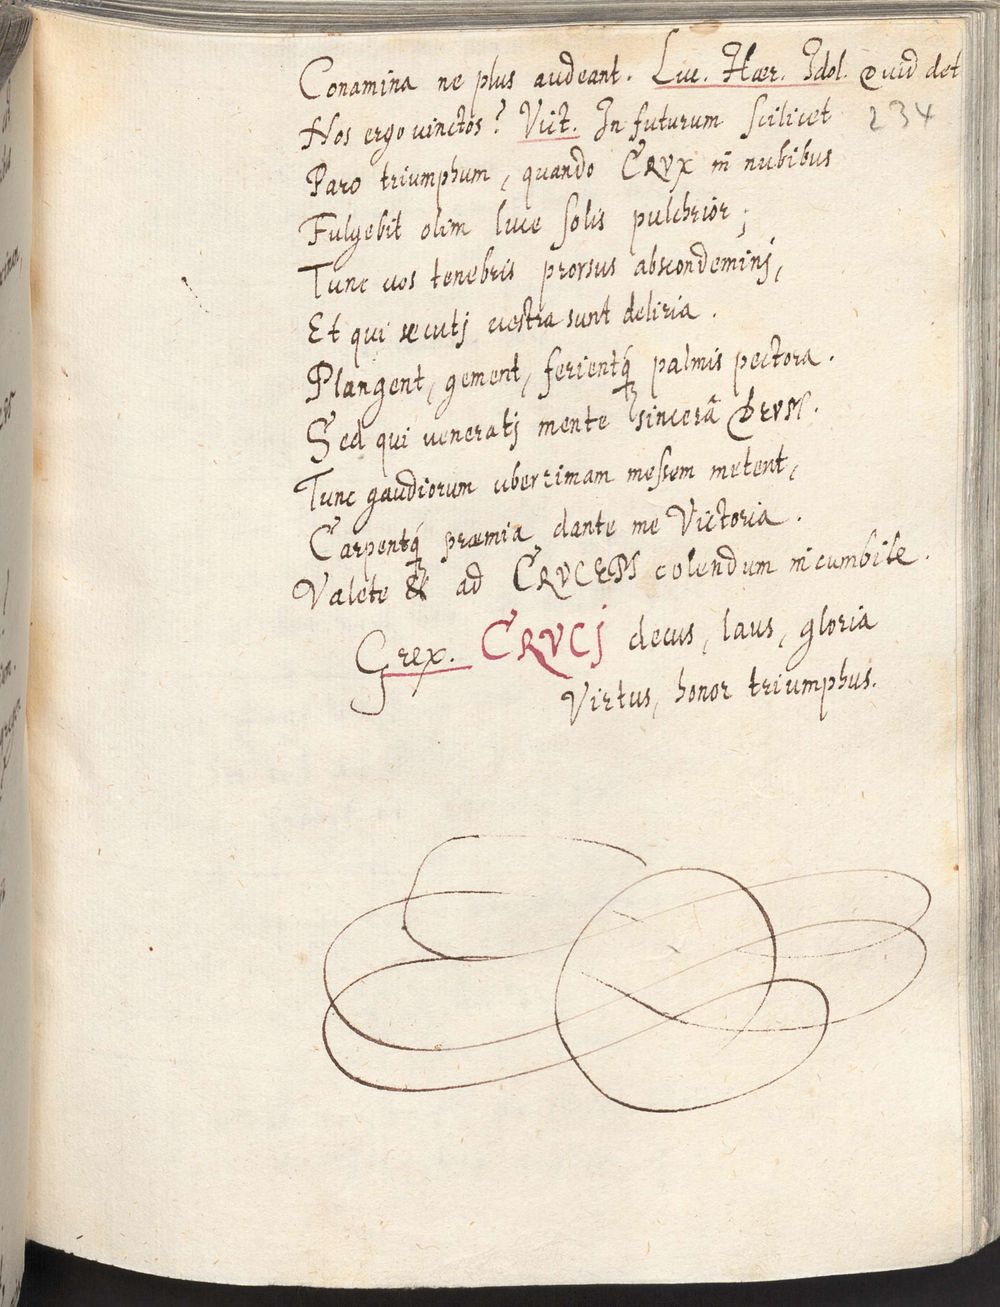 Conamina ne plus audeant. Luc. Hær. Idol. Quid det
234
Hos ergo vinctos? Vict. In futurum scilicet
Paro triumphum, quando CRVX in nubibus
Fulgebit olim luce solis pulchrior;
Tunc vos tenebris prorsus abscondeminj,
Et qui secutj vestra sunt deliria.
Plangent, gement, ferientq́ palmis pectora.
Sed qui veneratj mente sincerâ DEVM.
Tunc gaudiorum uberrimam messem metent,
Carpentq́ præmia dante me Victoria.
Valete & ad CRVCEM colendum incumbite.
Grex. CRVCJ decus, laus, gloria
Virtus, honor triumphus.